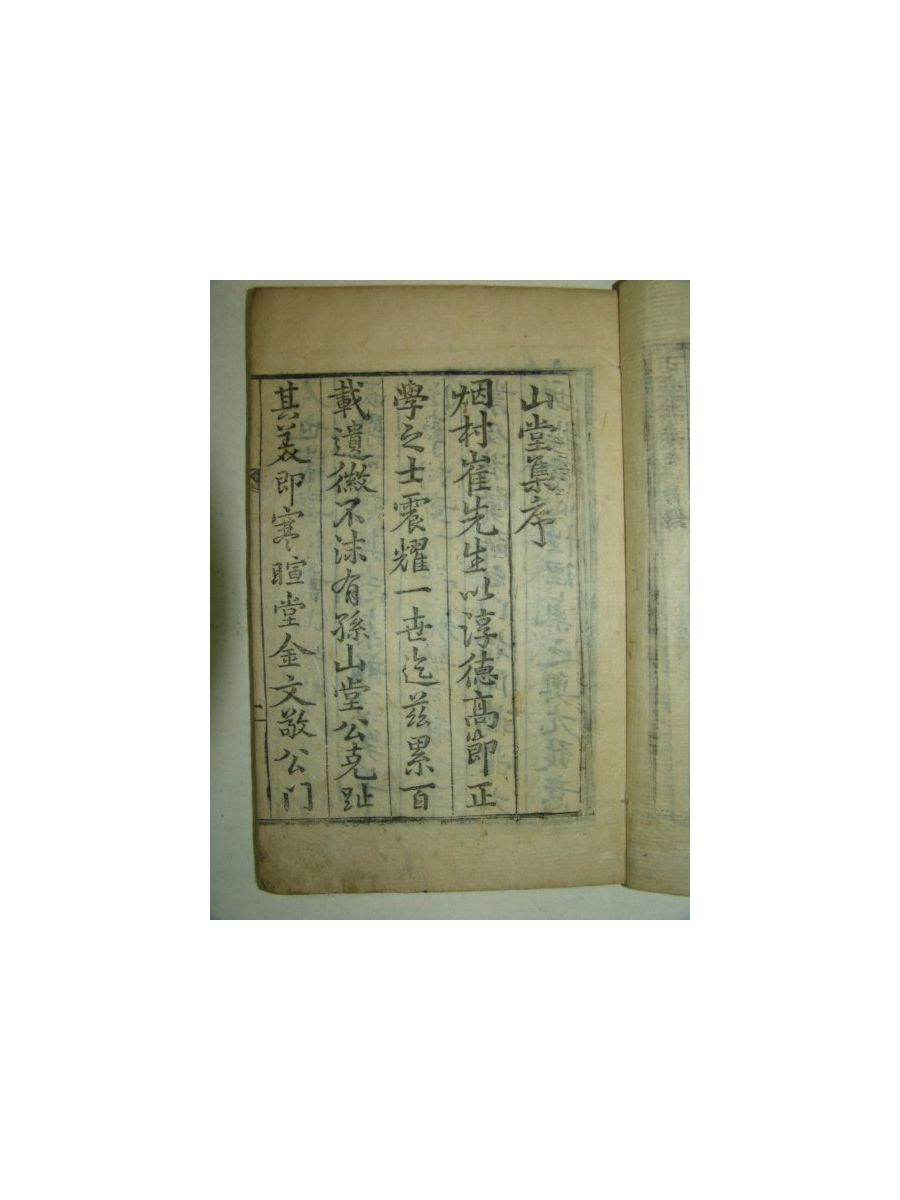 山堂集序
烟村崔先生以淳德高節正
學之士震耀一世迄玆累百
載遺徽不沫有孫山堂公克趾
其美即寒暄堂金文敬公門